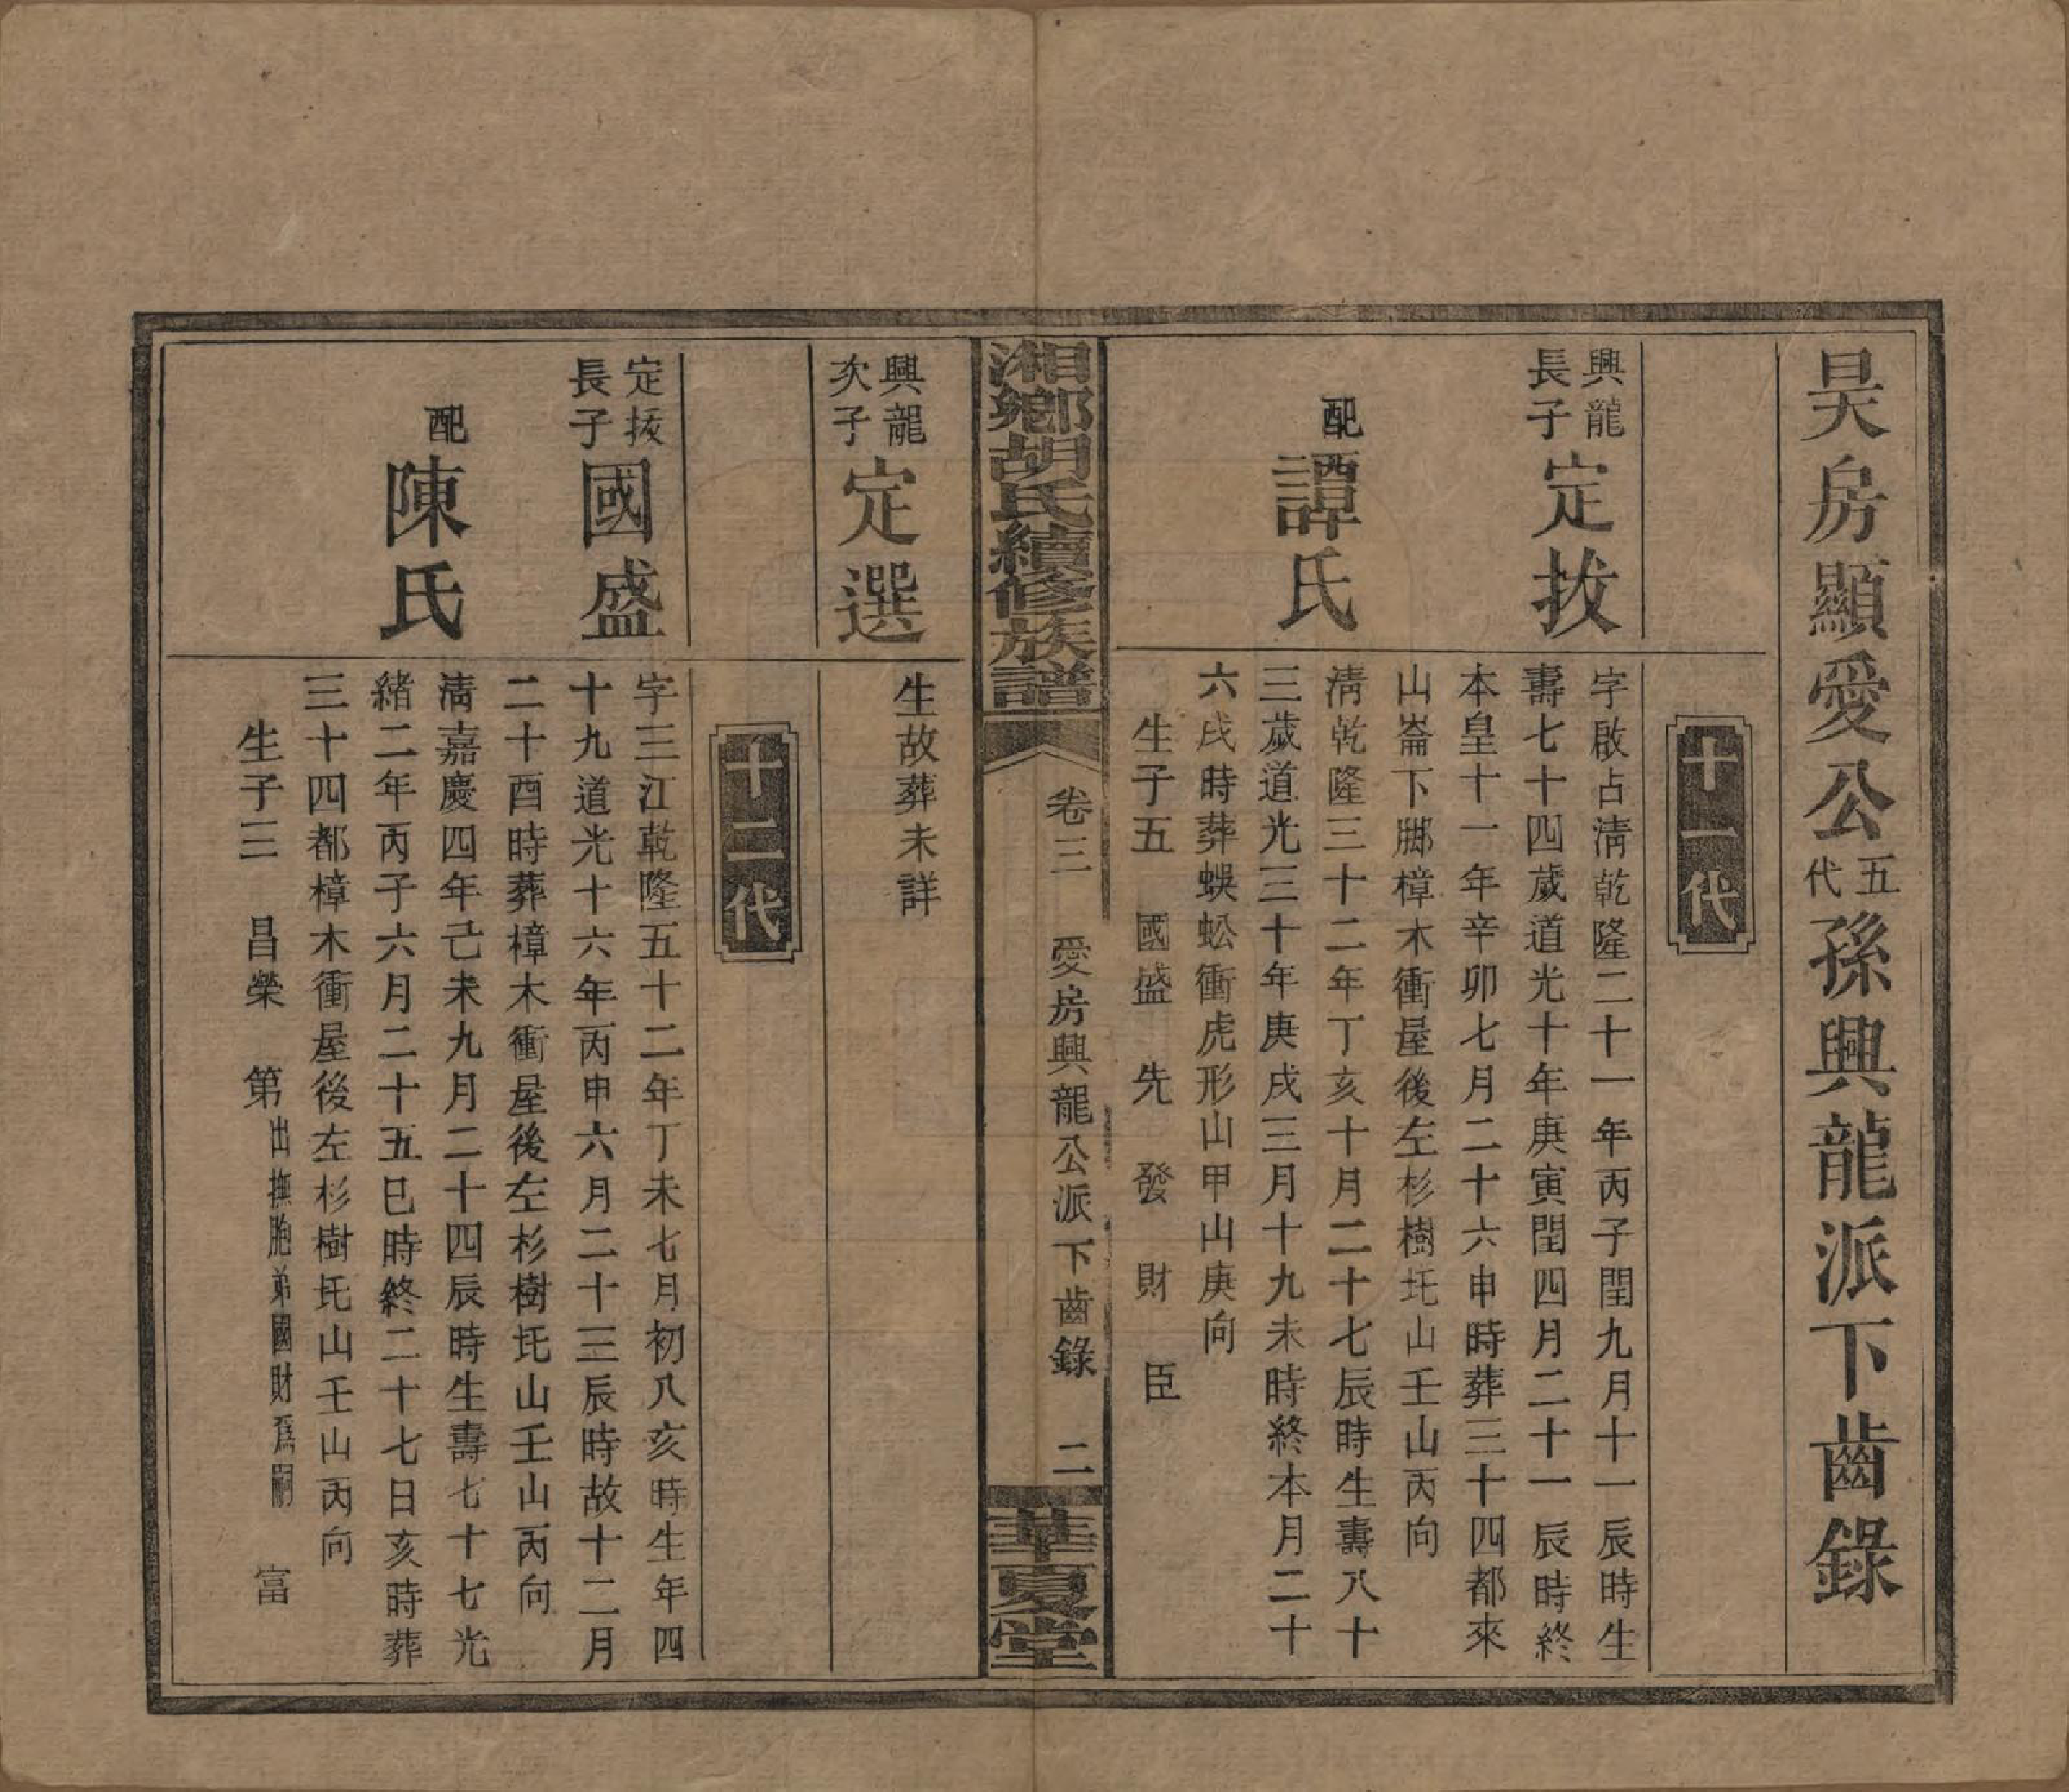 昊房顯愛公五代孫興龍派下齒錄
十一代
興龍長子
定拔
字啟占淸乾隆二十一年丙子閏九月十一辰時生
壽七十四歲道光十年庚寅閏四月二十一辰時終
本皇十一年辛卯七月二十六申時葬三十四都來
山崙下𨛗樟木衝屋後左杉樹圫山壬山丙向
配
譚氏
淸乾隆三十二年丁亥十月二十七辰時生壽八十
三歲道光三十年庚戌三月十九未時終本月二十
六戌時葬蜈蚣衝虎形山甲山庚向
生子五 國盛 先 發 財 臣
湘鄉胡氏續修族譜
卷三 愛房興龍公派下齒錄 二
華夏堂
興龍次子
定選
生故葬未詳
十二代
定拔長子
國盛
字三江乾隆五十二年丁未七月初八亥時生年四
十九道光十六年丙申六月二十三辰時故十二月
二十酉時葬樟木衝屋後左杉樹圫山壬山丙向
配
陳氏
淸嘉慶四年己未九月二十四辰時生壽七十七光
緒二年丙子六月二十五巳時終二十七日亥時葬
三十四都樟木衝屋後左杉樹圫山壬山丙向
生子三 昌榮 第出撫胞弟國財爲嗣 富